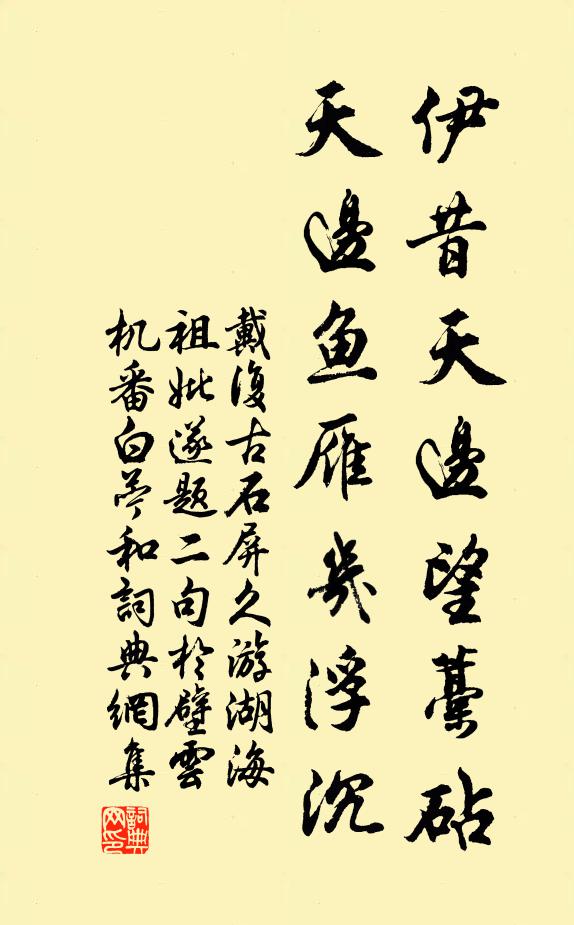 伊昔天邊望藁砧
天邊鱼雁幾浮沉
戴復古石屏久游湖海
祖妣遂題二句於壁雲
机番白苧和詞典網集
詞典
网印